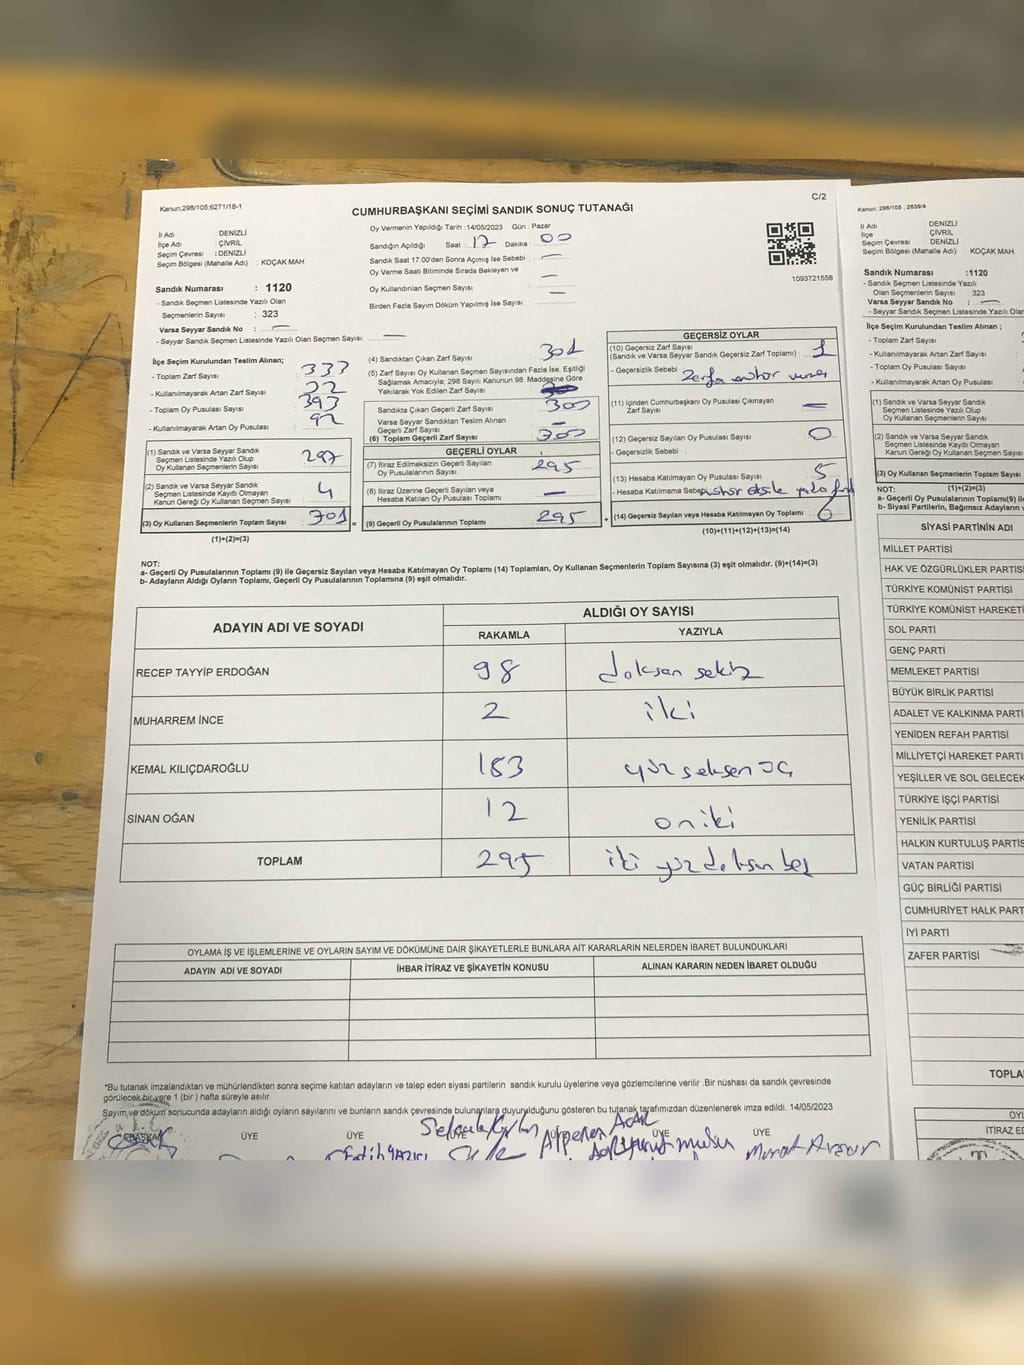 C/2
Kanun;298/105;6271/18-1
CUMHURBAŞKANI SEÇİMİ SANDIK SONUÇ TUTANAĞI
İl Adı : DENİZLİ
İlçe Adı : ÇİVRİL
Seçim Çevresi : DENİZLİ
Seçim Bölgesi (Mahalle Adı) : KOÇAK MAH.
Sandık Numarası : 1120
- Sandık Seçmen Listesinde Yazılı Olan
Seçmenlerin Sayısı : 323
Varsa Seyyar Sandık No : —
- Seyyar Sandık Seçmen Listesinde Yazılı Olan Seçmen Sayısı —
Oy Vermenin Yapıldığı Tarih :14/05/2023 Gün : Pazar
Sandığın Açıldığı Saat : 17 Dakika : 00
Sandık Saat 17:00'den Sonra Açımış İse Sebebi —
Oy Verme Saati Bitiminde Sırada Bekleyen ve
Oy Kullandırılan Seçmen Sayısı —
Birden Fazla Sayım Döküm Yapılmış İse Sayısı : —
1093721558
İlçe Seçim Kurulundan Teslim Alınan;
- Toplam Zarf Sayısı : 333
- Kullanılmayarak Artan Zarf Sayısı
- Toplam Oy Pusulası Sayısı : 393
- Kullanılmayarak Artan Oy Pusulası : 92
(1) Sandık ve Varsa Seyyar Sandık
Seçmen Listesinde Yazılı Olup
Oy Kullanan Seçmenlerin Sayısı : 297
(2) Sandık ve Varsa Seyyar Sandık
Seçmen Listesinde Kayıtlı Olmayan
Kanun Gereği Oy Kullanan Seçmen Sayısı : 4
(3) Oy Kullanan Seçmenlerin Toplam Sayısı : 301 =
(1)+(2)=(3)
(4) Sandıktan Çıkan Zarf Sayısı : 301
(5) Zarf Sayısı Oy Kullanan Seçmen Sayısından Fazla İse, Eşitliği
Sağlamak Amacıyla; 298 Sayılı Kanunun 98. Maddesine Göre
Yakılarak Yok Edilen Zarf Sayısı
Sandıkta Çıkan Geçerli Zarf Sayısı : 300
Varsa Seyyar Sandıktan Teslim Alınan
Geçerli Zarf Sayısı : —
(6) Toplam Geçerli Zarf Sayısı : 300
GEÇERLİ OYLAR
(7) İtiraz Edilmeksizin Geçerli Sayılan
Oy Pusulalarının Sayısı : 295
(8) İtiraz Üzerine Geçerli Sayılan veya
Hesaba Katılan Oy Pusulası Toplamı : —
(9) Geçerli Oy Pusulalarının Toplamı : 295 +
GEÇERSİZ OYLAR
(10) Geçersiz Zarf Sayısı
(Sandık ve Varsa Seyyar Sandık Geçersiz Zarf Toplamı) : 1
- Geçersizlik Sebebi
(11) İçinden Cumhurbaşkanı Oy Pusulası Çıkmayan
Zarf Sayısı : —
(12) Geçersiz Sayılan Oy Pusulası Sayısı : 0
- Geçersizlik Sebebi :
(13) Hesaba Katılmayan Oy Pusulası Sayısı : 5
- Hesaba Katılmama Sebebi
(14) Geçersiz Sayılan veya Hesaba Katılmayan Oy Toplamı : 6
(10)+(11)+(12)+(13)=(14)
NOT:
a- Geçerli Oy Pusulalarının Toplamı (9) ile Geçersiz Sayılan veya Hesaba Katılmayan Oy Toplamı (14) Toplamları, Oy Kullanan Seçmenlerin Toplam Sayısına (3) eşit olmalıdır. (9)+(14)=(3)
b- Adayların Aldığı Oyların Toplamı, Geçerli Oy Pusulalarının Toplamına (9) eşit olmalıdır.
ADAYIN ADI VE SOYADI
ALDIĞI OY SAYISI
RAKAMLA YAZIYLA
RECEP TAYYİP ERDOĞAN 98 doksan sekiz
MUHARREM İNCE 2 iki
KEMAL KILIÇDAROĞLU 183 yüz seksen üç
SİNAN OĞAN 12 oniki
TOPLAM 295 iki yüz doksan beş
OYLAMA İŞ VE İŞLEMLERİNE VE OYLARIN SAYIM VE DÖKÜMÜNE DAİR ŞİKAYETLERLE BUNLARA AİT KARARLARIN NELERDEN İBARET BULUNDUKLARI
ADAYIN ADI VE SOYADI İHBAR İTİRAZ VE ŞİKAYETİN KONUSU ALINAN KARARIN NEDEN İBARET OLDUĞU
*Bu tutanak imzalandıktan ve mühürlendikten sonra seçime katılan adayların ve talep eden siyasi partilerin sandık kurulu üyelerine veya gözlemcilerine verilir .Bir nüshası da sandık çevresinde
görülecek bir yere 1 (bir ) hafta süreyle asılır.
Sayım ve döküm sonucunda adayların aldığı oyların sayılarını ve bunların sandık çevresinde bulunanlara duyurulduğunu gösteren bu tutanak tarafımızdan düzenlenerek imza edildi. 14/05/2023
BAŞKAN ÜYE ÜYE ÜYE ÜYE ÜYE ÜYE
Fatih YAZICI
Murat
Kanun; 298/105 , 2839/4
İl Adı : DENİZLİ
İlçe : ÇİVRİL
Seçim Çevresi : DENİZLİ
Seçim Bölgesi (Mahalle Adı) KOÇAK MAH.
Sandık Numarası :1120
- Sandık Seçmen Listesinde Yazılı
Olan Seçmenlerin Sayısı : 323
Varsa Seyyar Sandık No : —
- Seyyar Sandık Seçmen Listesinde Yazılı Olan
İlçe Seçim Kurulundan Teslim Alınan ;
- Toplam Zarf Sayısı
- Kullanılmayarak Artan Zarf Sayısı
- Toplam Oy Pusulası Sayısı
- Kullanılmayarak Artan Oy Pusulası
(1) Sandık ve Varsa Seyyar Sandık
Seçmen Listesinde Yazılı Olup
Oy Kullanan Seçmenlerin Sayısı
(2) Sandık ve Varsa Seyyar Sandık
Seçmen Listesinde Kayıtlı Olmayan
Kanun Gereği Oy Kullanan Seçmen
(3) Oy Kullanan Seçmenlerin Toplam Sayısı
(1)+(2)=(3)
NOT:
a- Geçerli Oy Pusulalarının Toplamı(9) ile
b- Siyasi Partilerin, Bağımsız Adayların
SİYASİ PARTİNİN ADI
MİLLET PARTİSİ
HAK VE ÖZGÜRLÜKLER PARTİSİ
TÜRKİYE KOMÜNİST PARTİSİ
TÜRKİYE KOMÜNİST HAREKETİ
SOL PARTİ
GENÇ PARTİ
MEMLEKET PARTİSİ
BÜYÜK BİRLİK PARTİSİ
ADALET VE KALKINMA PARTİ
YENİDEN REFAH PARTİSİ
MİLLİYETÇİ HAREKET PARTİ
YEŞİLLER VE SOL GELECEK
TÜRKİYE İŞÇİ PARTİSİ
YENİLİK PARTİSİ
HALKIN KURTULUŞ PARTİS
VATAN PARTİSİ
GÜÇ BİRLİĞİ PARTİSİ
CUMHURİYET HALK PART
İYİ PARTİ
ZAFER PARTİSİ
TOPLA
OYL
İTİRAZ ED